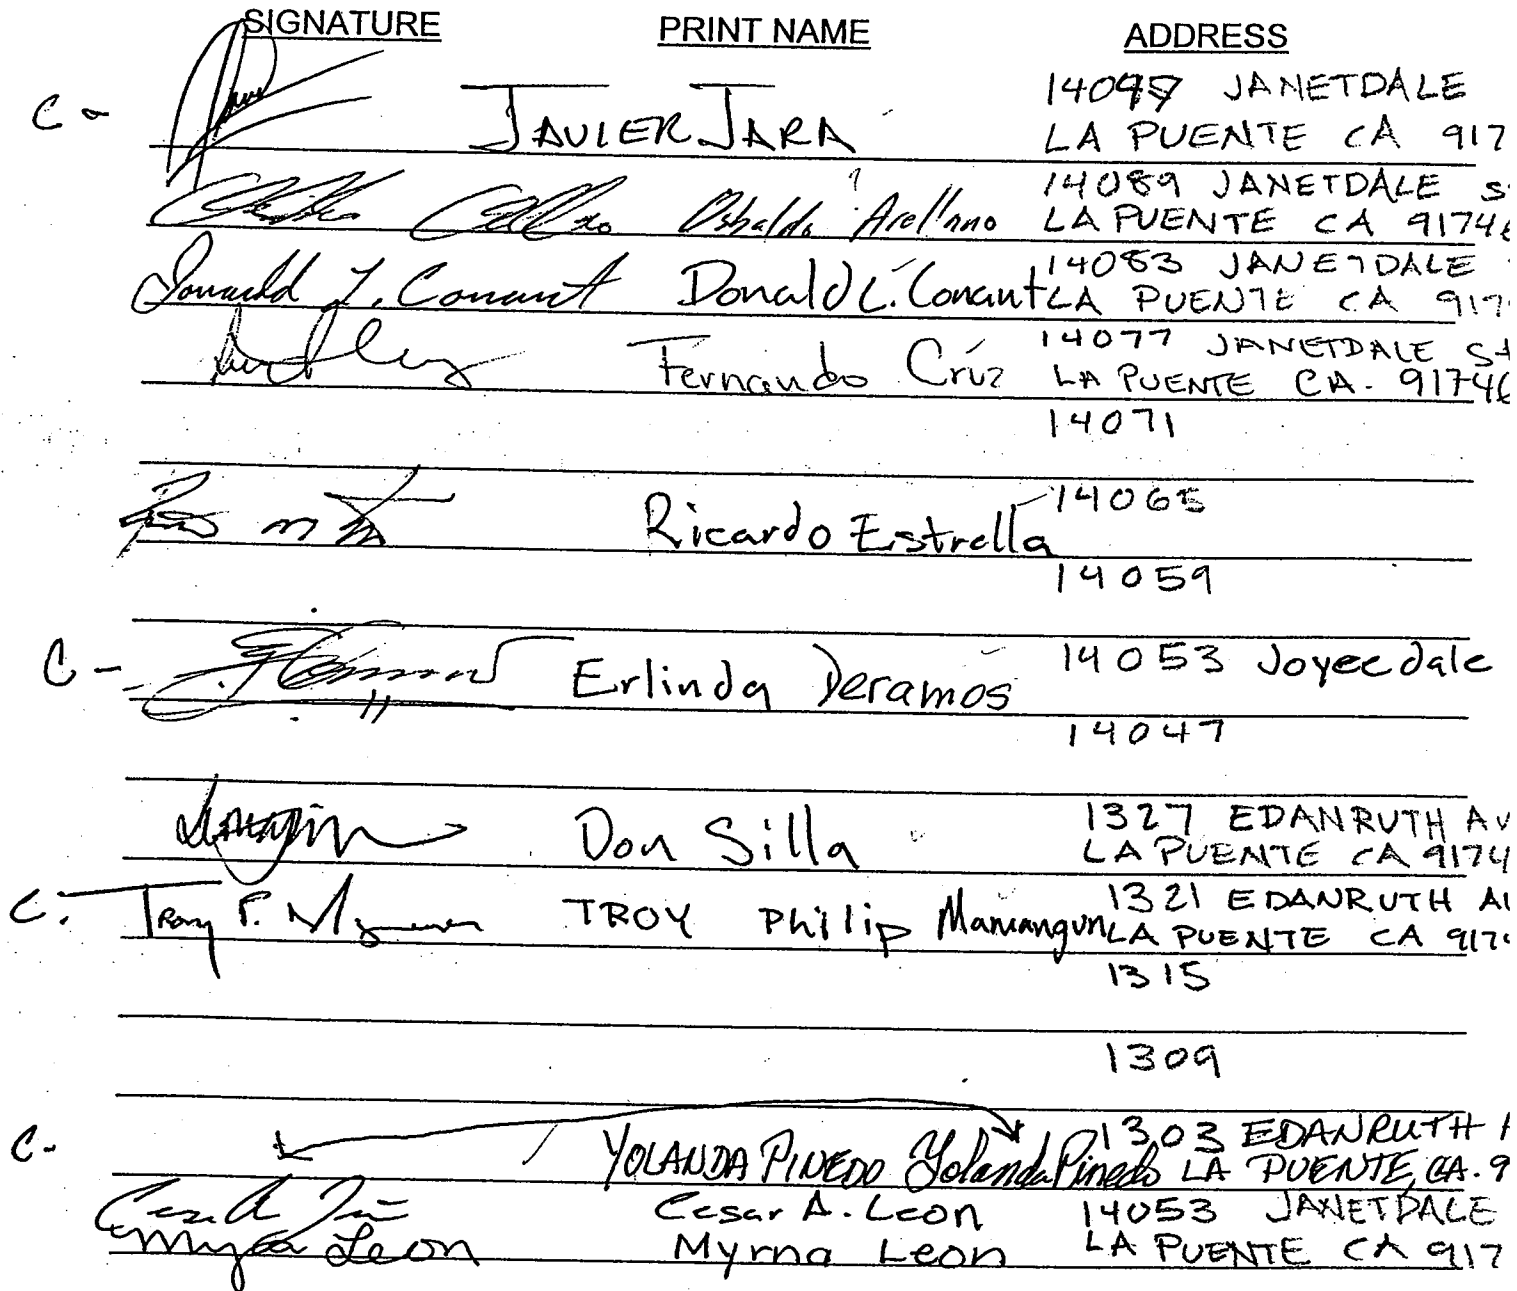 SIGNATURE PRINT NAME ADDRESS
C - JAVIER JARA 14097 JANETDALE
LA PUENTE CA 917
Osbaldo Arellano 14089 JANETDALE S
LA PUENTE CA 91746
Donald L. Conant Donald L. Conant 14083 JANETDALE
LA PUENTE CA 917
Fernando Cruz 14077 JANETDALE St
LA PUENTE CA. 91746
14071
Ricardo Estrella 14065
14059
C - Erlinda Deramos 14053 Joycedale
14047
Don Silla 1327 EDANRUTH AV
LA PUENTE CA 9174
C. Troy P. TROY Philip Manangun 1321 EDANRUTH AV
LA PUENTE CA 917
1315
1309
C- YOLANDA PINEDO Yolanda Pinedo 1303 EDANRUTH A
LA PUENTE, CA. 9
Cesar A. Leon 14053 JANETDALE
Myrna Leon Myrna Leon LA PUENTE CA 917